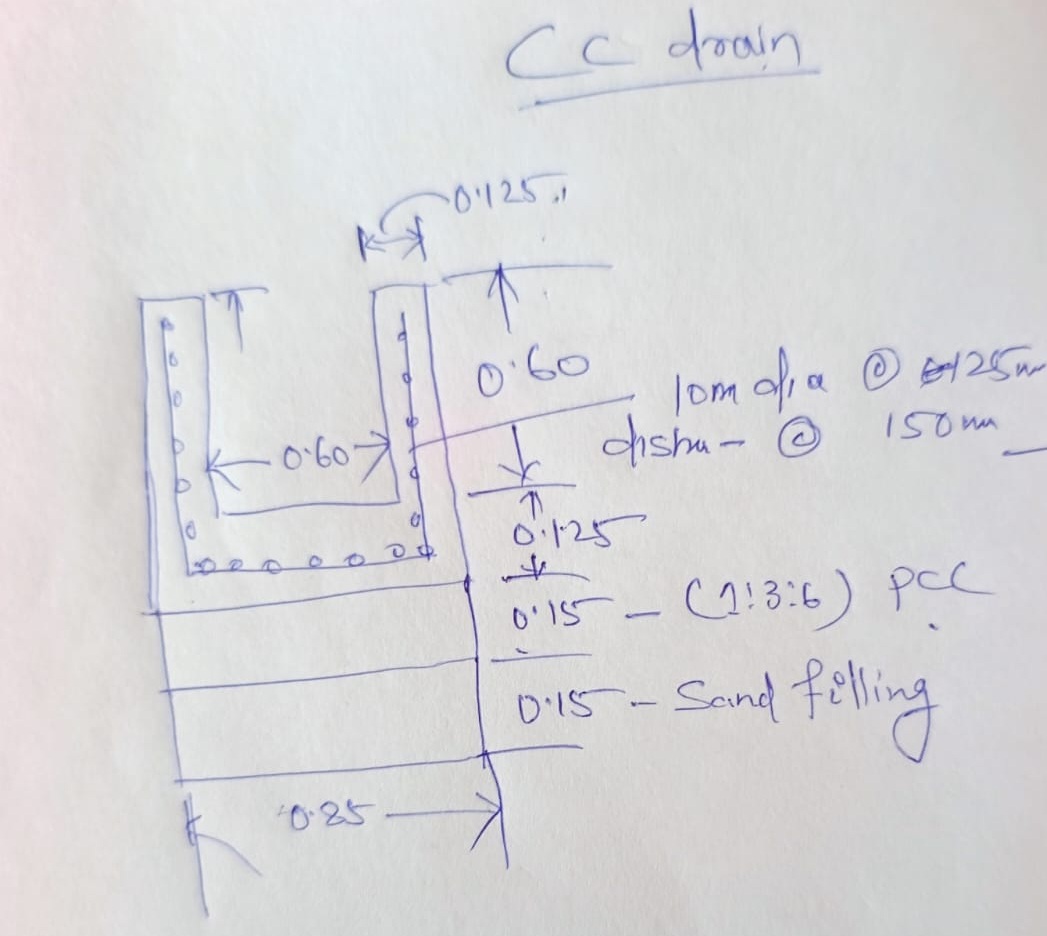 CC drain
0.125
0.60
0.60
10m dia @ 125m
distn- @ 150mm
0.125
0.15 - (1:3:6) pcc
0.15 - Sand filling
0.85